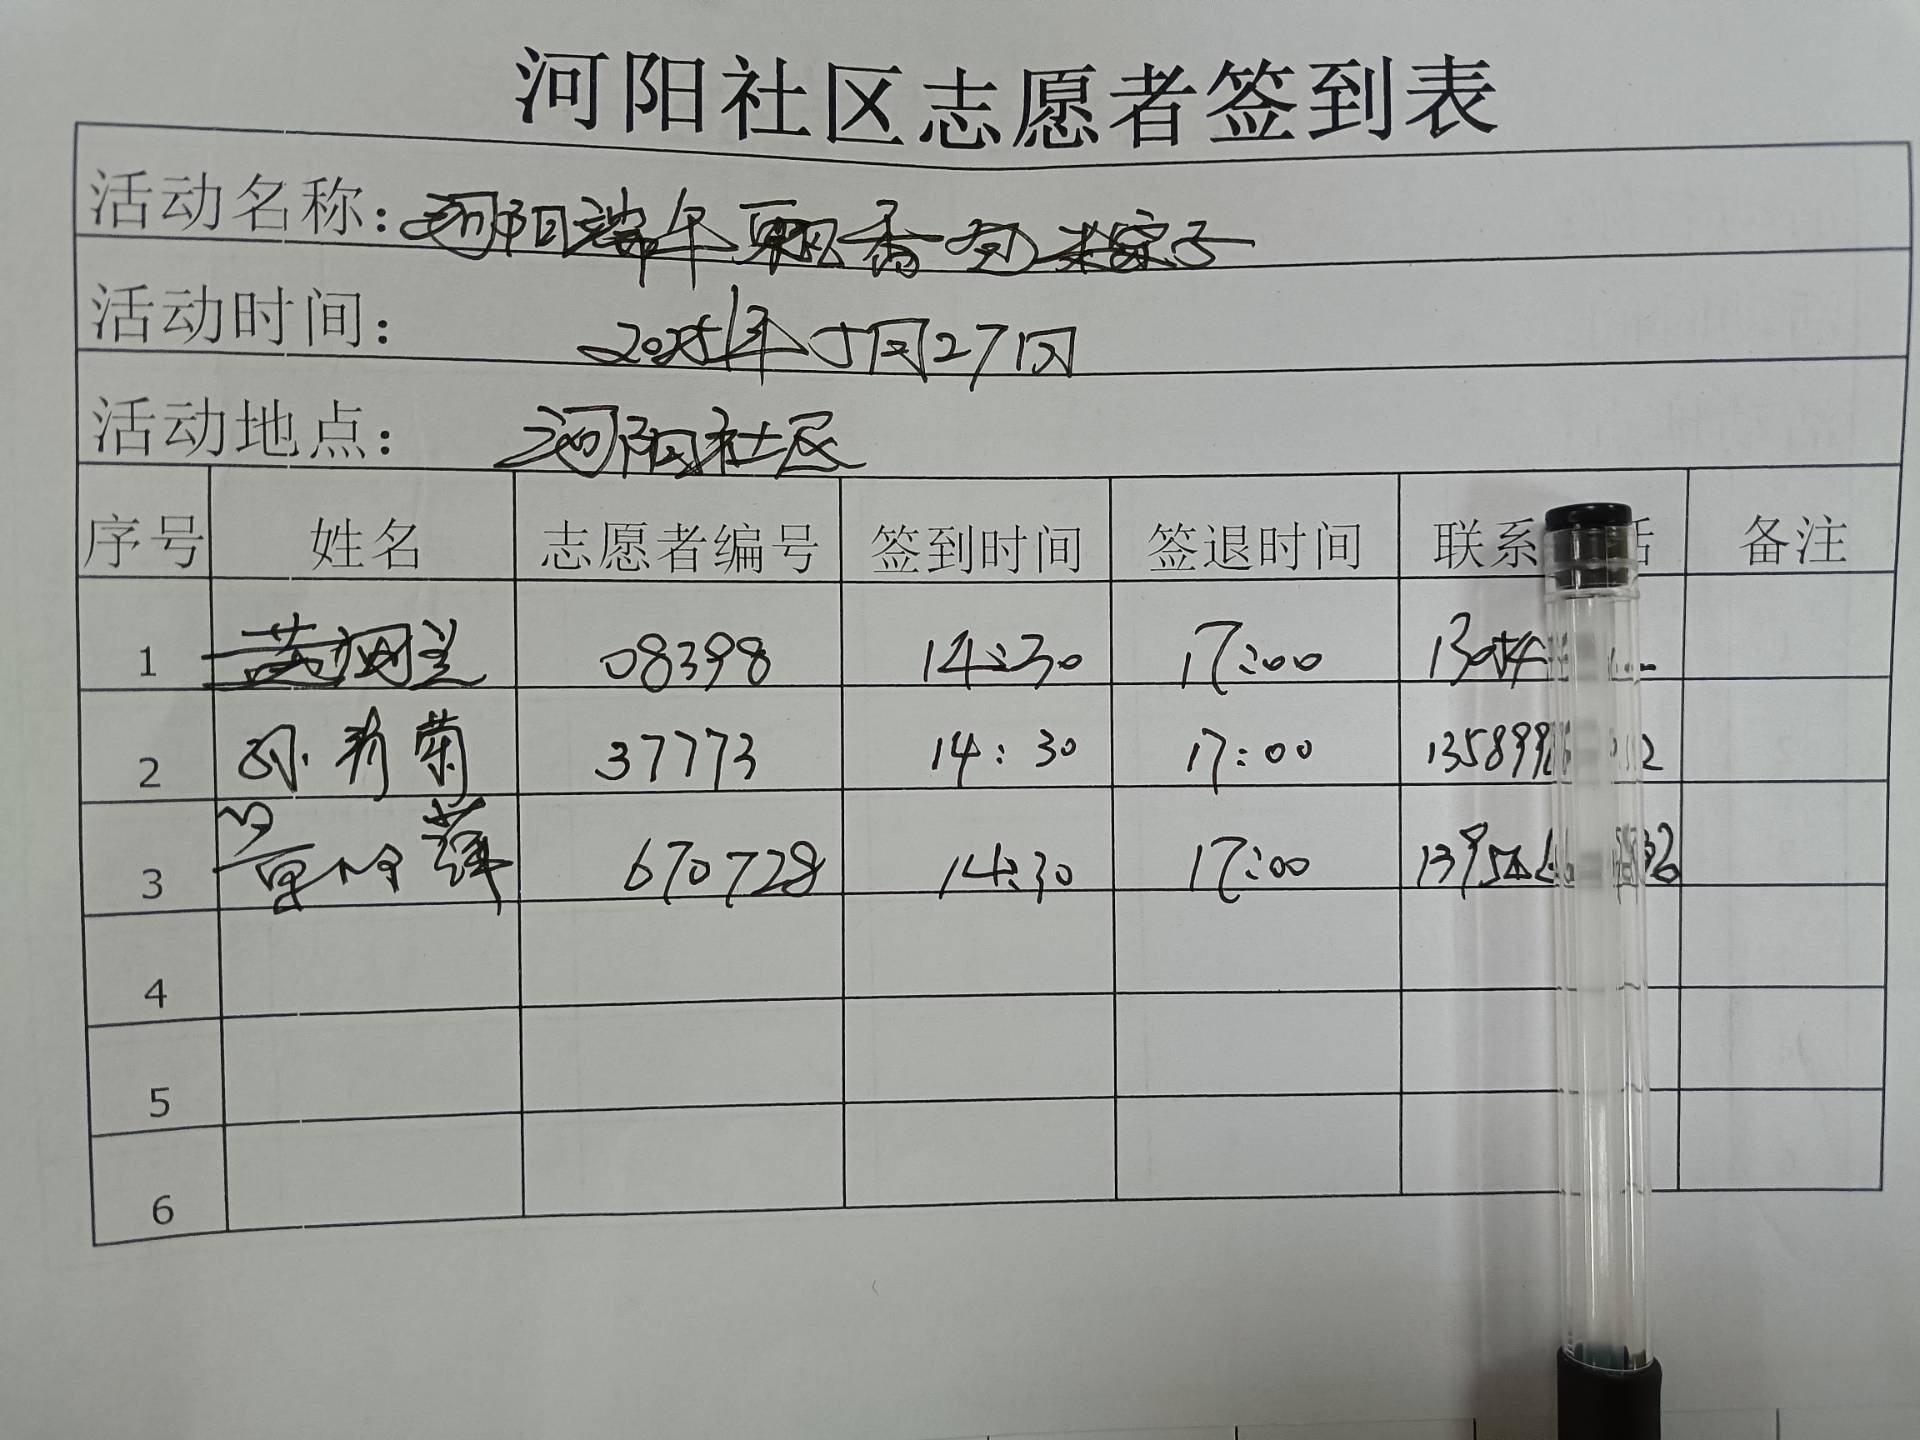 河阳社区志愿者签到表
活动名称: 河阳端午飘香包粽子
活动时间: 2025年5月27日
活动地点: 河阳社区
序号 姓名 志愿者编号 签到时间 签退时间 联系 话 备注
1 08398 14:30 17:00
2 孙 菊 37773 14:30 17:00 135899
3 670728 14:30 17:00
4
5
6